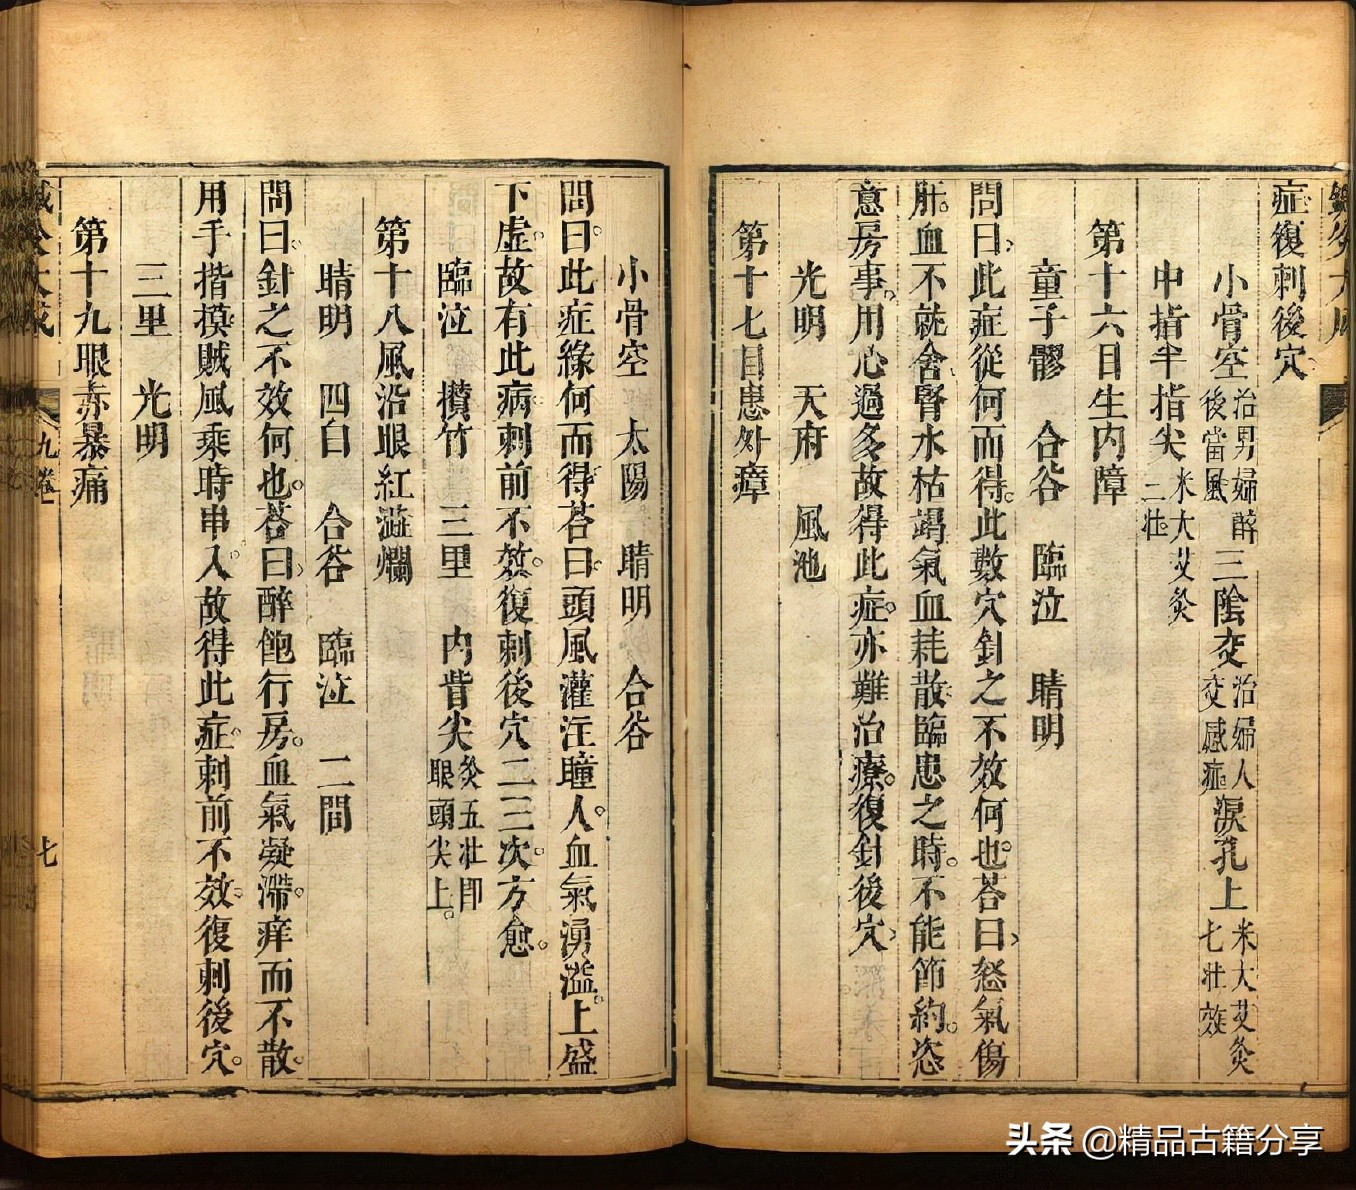 症復刺後穴
小骨空治男婦醉後當風三陰交治婦人交感症淚孔上米大艾灸七壯效
中指半指尖米大艾灸二壯
第十六目生内障
童子髎　合谷　臨泣　睛明
問曰此症從何而得此數穴針之不效何也荅曰怒氣傷
肝血不就舍腎水枯竭氣血耗散臨患之時不能節約恣
意房事用心過多故得此症亦難治療復針後穴
光明　天府　風池
第十七目患外瘴
小骨空　太陽　睛明　合谷
問曰此症緣何而得荅曰頭風灌注瞳人血氣湧溢上盛
下虛故有此病刺前不效復刺後穴二三次方愈
臨泣　攢竹　三里　内眥尖灸五壯即眼頭尖上
第十八風沿眼紅澁爛
睛明　四白　合谷　臨泣　二間
問曰針之不效何也荅曰醉飽行房血氣凝滯痒而不散
用手揩摸賊風乘時串入故得此症刺前不效復刺後穴
三里　光明
第十九眼赤暴痛
九卷
七
头条 @精品古籍分享